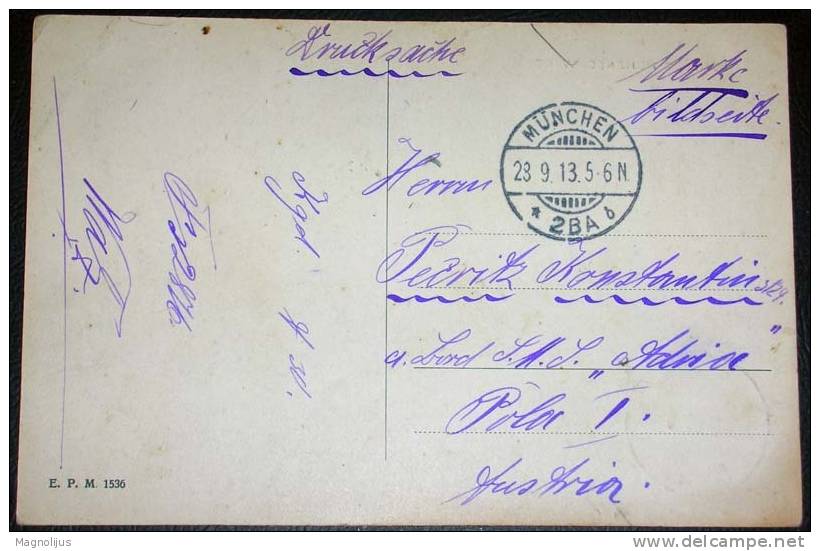 Drucksache
Marke
bildseite.
MÜNCHEN
23 9. 13. 5-6 N.
* 2BA b
Herrn
Pečrik Konstantin
a. Bord S.M.S. „Adria"
Pola I.
Austria.
E. P. M. 1536
Magnolijus
delcampe.net